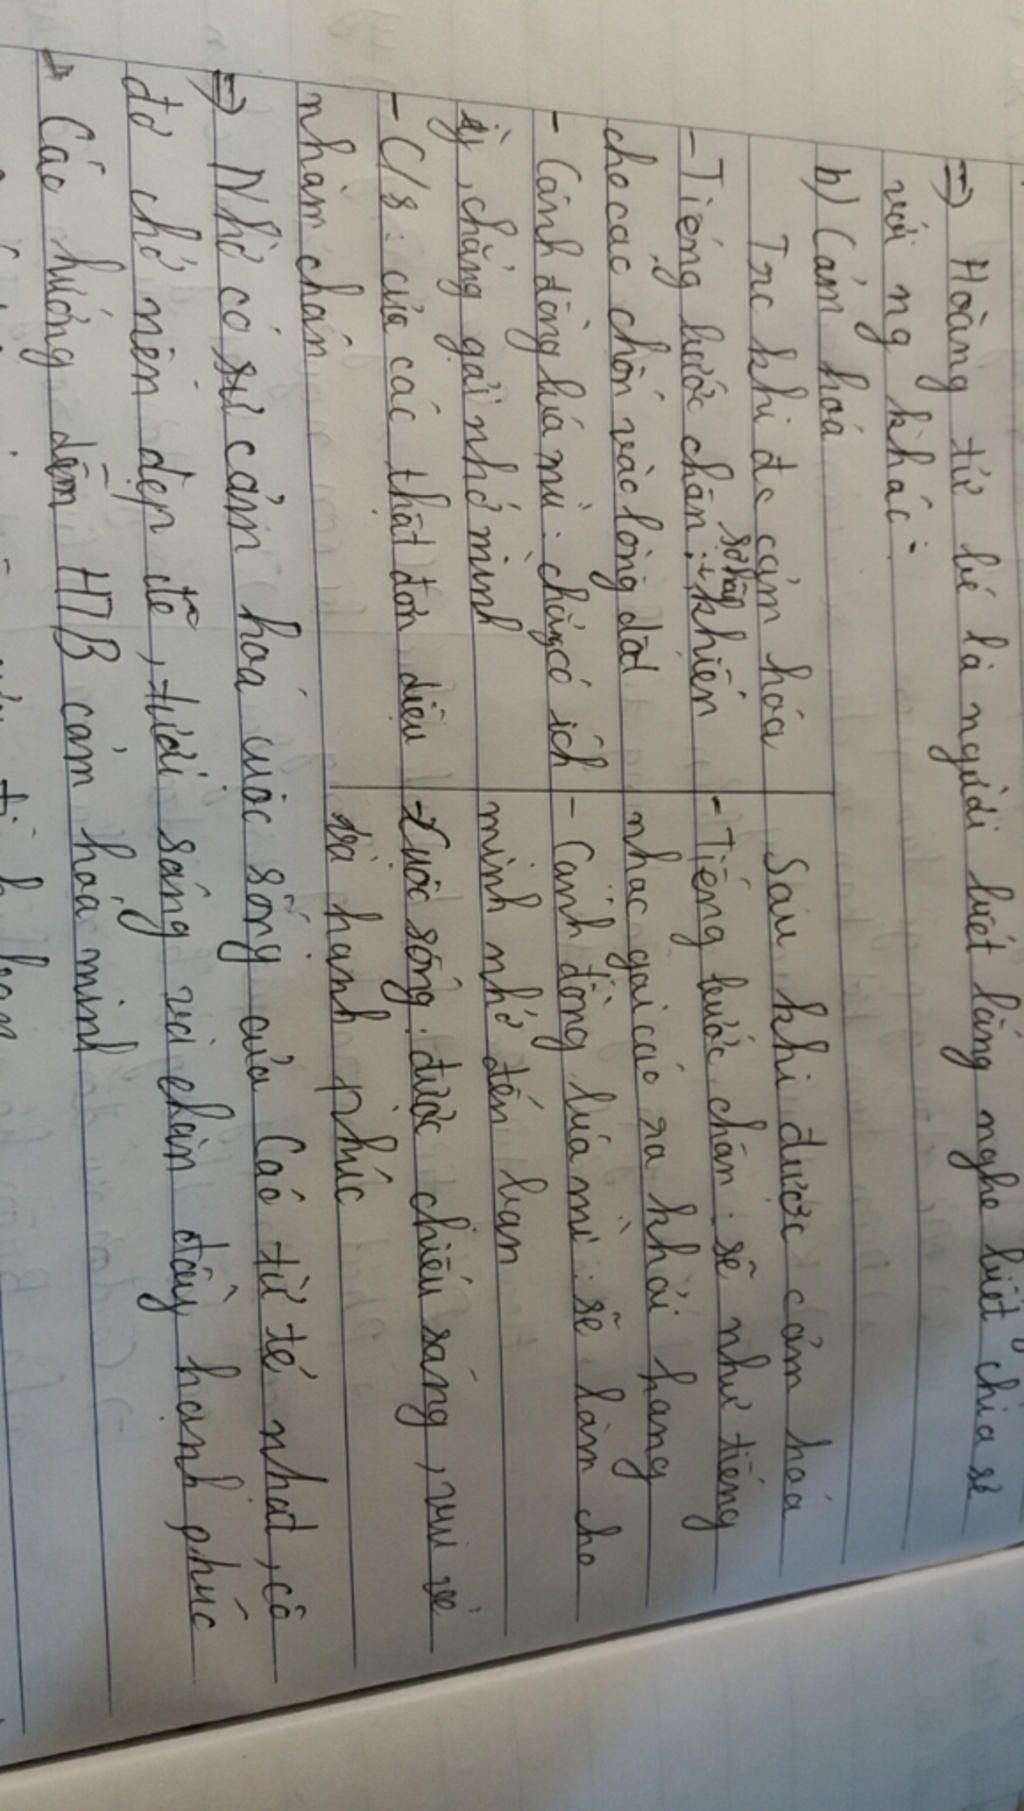 => Hoàng tử bé là người biết lắng nghe biết chia sẻ
với ng khác.
b) Cảm hoá
Trc khi đc cảm hóa
Sau khi được cảm hoá
- Tiếng bước chân: sợ hãi, khiến
- Tiếng bước chân: sẽ như tiếng
cho cáo chốn vào lòng đất
nhạc gọi cáo ra khỏi hang
- Cánh đồng lúa mì: chả có ích
- Cánh đồng lúa mì: sẽ làm cho
gì, chẳng gợi nhớ mình
mình nhớ đến bạn
- C/s: của cáo thật đơn điệu
- Cuộc sống: được chiếu sáng, vui vẻ
nhàm chán
và hạnh phúc
=> Nhờ có sự cảm hoá cuộc sống của Cáo từ tẻ nhạt, cô
đơ chở nên đẹp đẽ, tươi sáng và chàn đầy hạnh phúc
Cáo hướng dẫn HTB cảm hoá mình